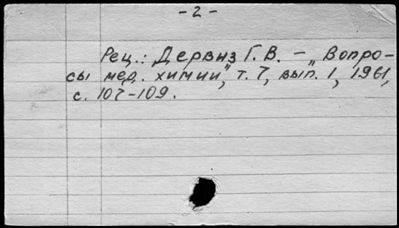 - 2 -
Рец.: Дервиз Г. В. – „Вопро-
сы мед. химии", т. 7, вып. 1, 1961,
с. 107-109.